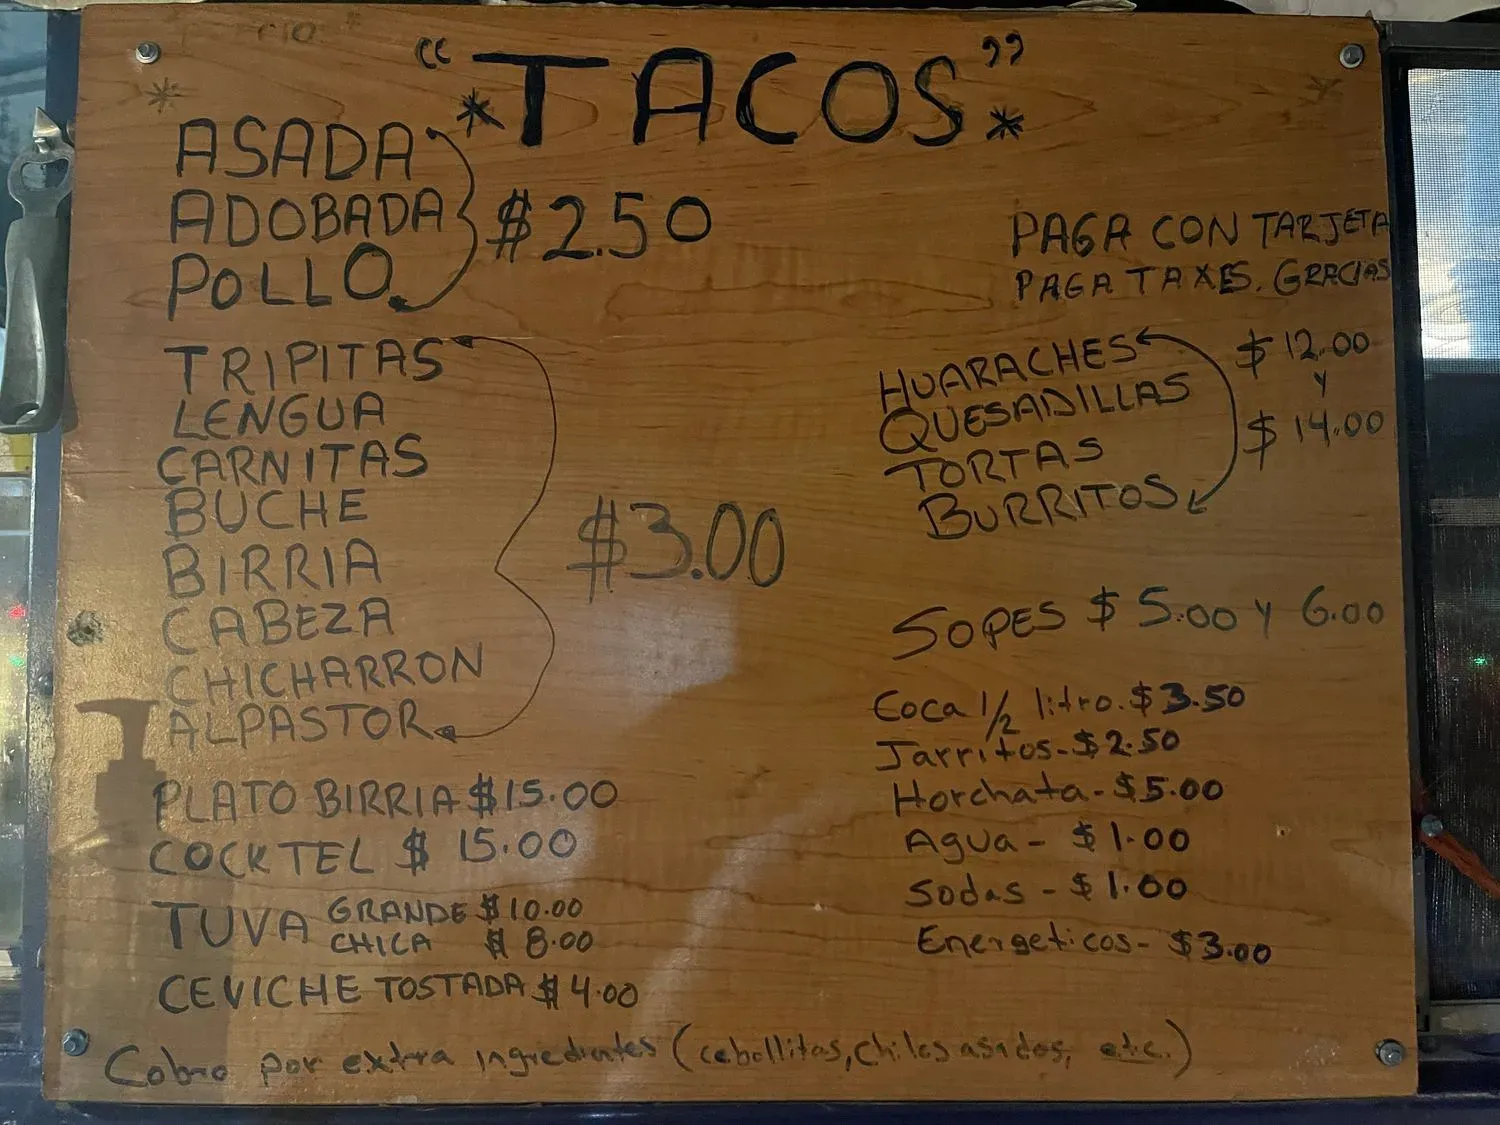 "TACOS"
ASADA
ADOBADA
POLLO
$2.50
TRIPITAS
LENGUA
CARNITAS
BUCHE
BIRRIA
CABEZA
CHICHARRON
ALPASTOR
$3.00
PLATO BIRRIA $15.00
COCKTEL $ 15.00
TUVA GRANDE $10.00
CHICA $ 8.00
CEVICHE TOSTADA $4.00
PAGA CON TARJETA
PAGA TAXES. GRACIAS
HUARACHES
QUESADILLAS
TORTAS
BURRITOS
$12.00
y
$14.00
SOPES $5.00 y 6.00
Coca 1/2 litro. $3.50
Jarritos - $2.50
Horchata - $5.00
Agua - $1.00
Sodas - $1.00
Energeticos - $3.00
Cobro por extra ingredientes (cebollitas, chiles asados, etc.)